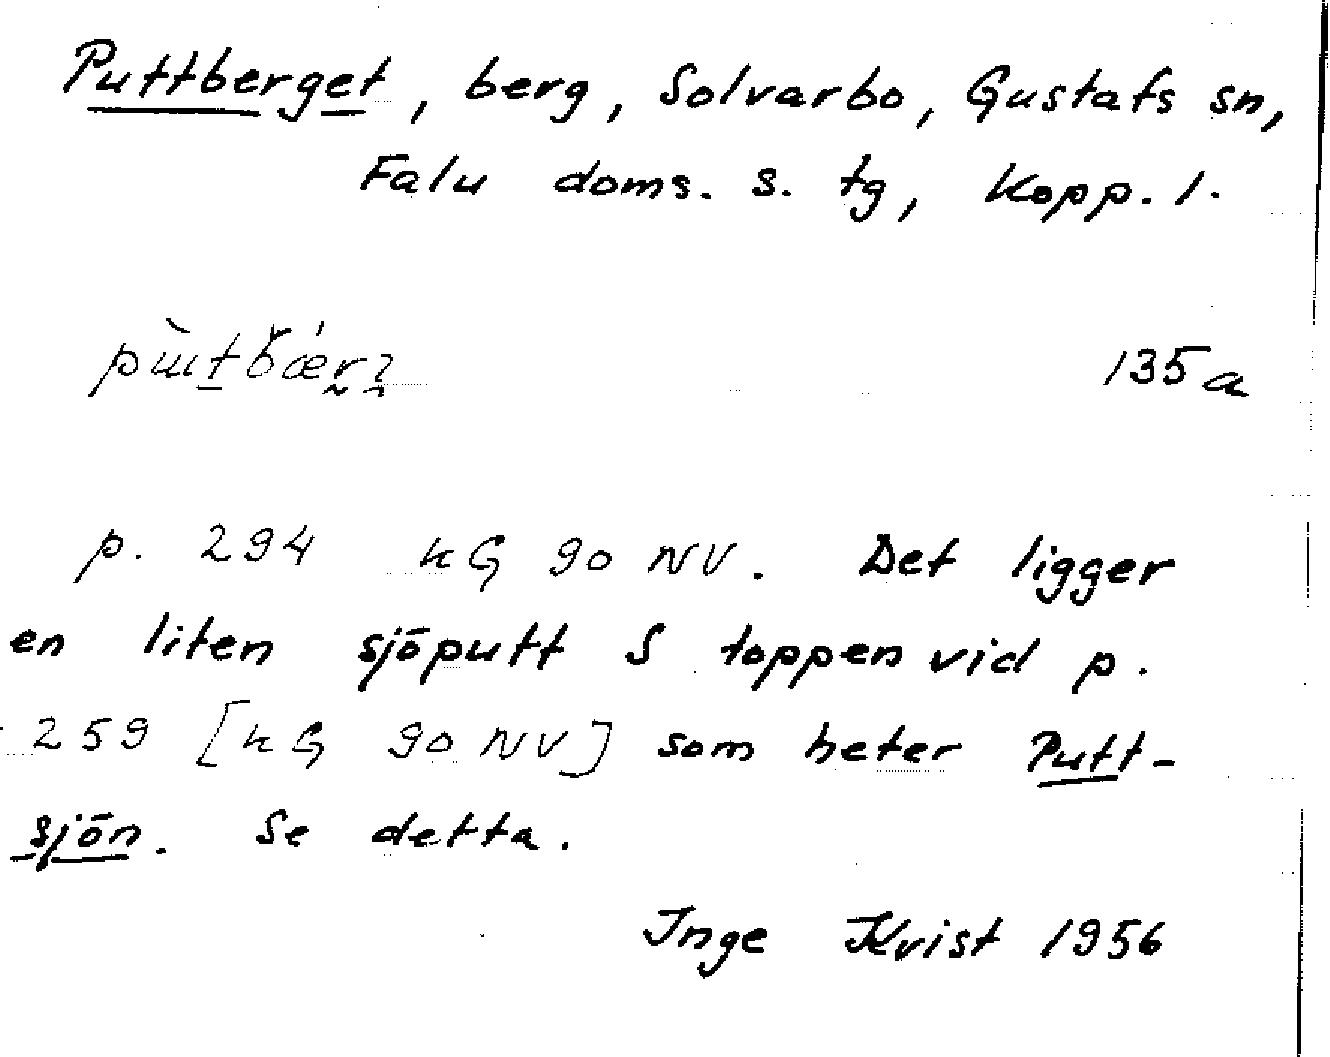 Puttberget, berg, Solvarbo, Gustafs sn,
Falu doms. s. tg, Kopp. l.
135 a
p. 294 kG 90 NV. Det ligger
en liten sjöputt S toppen vid p.
259 [kG 90 NV] som heter Putt-
sjön. Se detta.
Inge Kvist 1956